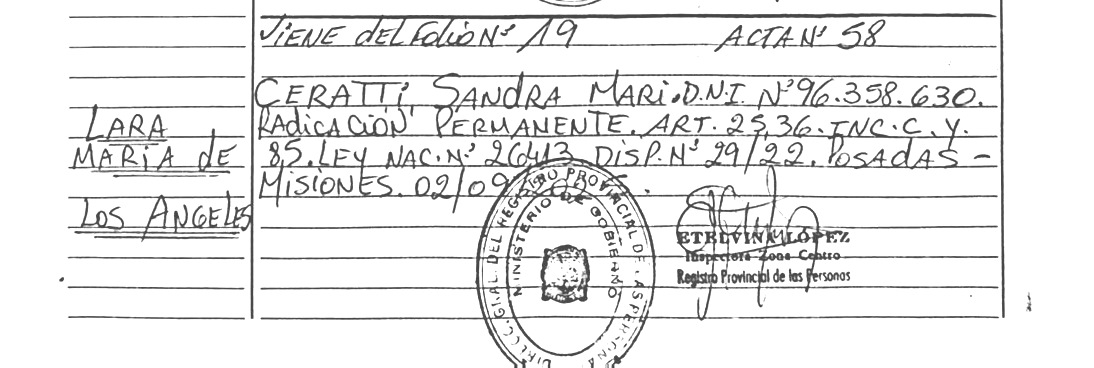 VIENE del Folio Nº 19 ACTA Nº 58
CERATTi, SANdRA MARi. D.N.I. Nº 96.358.630.
RAdiCACiÓN PERMANENTE. ART. 25,36. INC. C. Y.
85. LEY NAC. Nº 26413 DISP. Nº 29/22. POSAdAS -
MiSiONES. 02/09
LARA
MARiA dE
LOS ANGELES
DIRECC. GRAL. DEL REGISTRO PROVINCIAL DE LAS PERSONAS
MINISTERIO DE GOBIERNO
ETELVINA LÓPEZ
Inspectora Zona Centro
Registro Provincial de las Personas